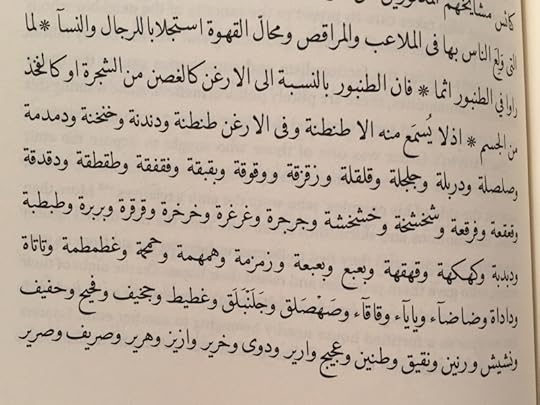 كائس مشايخهم
التى ولع الناس بها فى الملاعب والمراقص ومحالّ القهوة استجلابا للرجال والنسآ * لما
راوا فى الطنبور اثما * فان الطنبور بالنسبة الى الارغن كالغصن من الشجرة او كالفخذ
من الجسم * اذ لا يُسمَع منه الا طنطنة وفى الارغن طنطنة ودندنة وخنخنة ودمدمة
وصلصلة ودربلة وجلجلة وقلقلة وزقزقة ووقوقة وبقبقة وفقفقة وطقطقة ودقدقة
وقعقعة وفرقعة وشخشخة وخشخشة وجرجرة وغرغرة وخرخرة وقرقرة وبربرة وطبطبة
ودبدبة وكهكهة وقهقهة وبعبع وبعبعة وزمزمة وهمهمة وحمحمة وغطمطمة وتاتاة
وداداة وضاضآء ويايآء وقاقآء وصَهْصَلق وجَلَنْبَلَق وغطيط وجخيف وفحيح وحفيف
ونشيش ورنين ونقيق وطنين وعجيج وارير ودوى وخرير وازيز وهرير وصريف وصرير